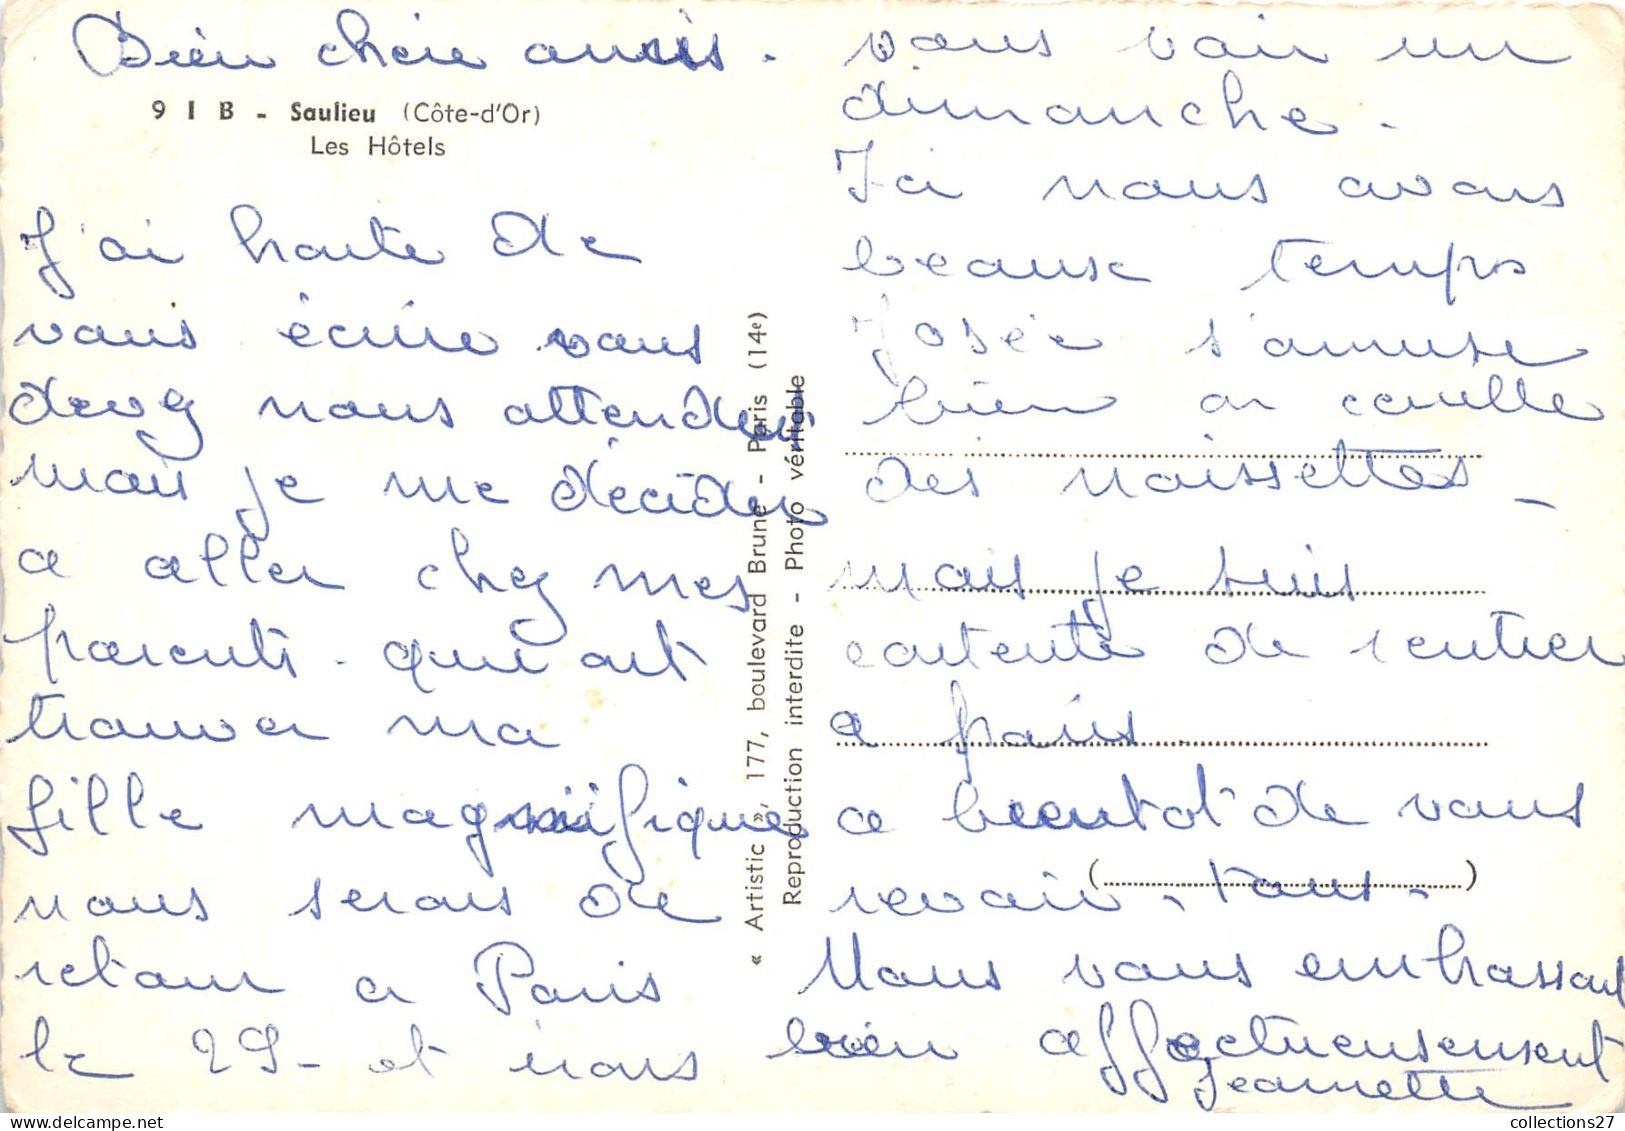 Bien chère amis.
9 1 B - Saulieu (Côte-d'Or)
Les Hôtels
J'ai honte de
vous écrire vous
devez nous attendre
mais je me décider
a aller chez mes
parents. qui ont
trouver ma
fille magnifique
nous serons de
retour a Paris
le 29 - et irons
« Artistic », 177, boulevard Brune - Paris (14e)
Reproduction interdite - Photo véritable
vous voir un
dimanche.
Ici nous avons
beause temps
Josée s'amuse
bien on ceuille
des noissettes -
mais je suis
contente de rentrer
a paris.
a bientot de vous
revoir. tous.
Nous vous embrassont
bien affectueusement
Jeannette
collections27